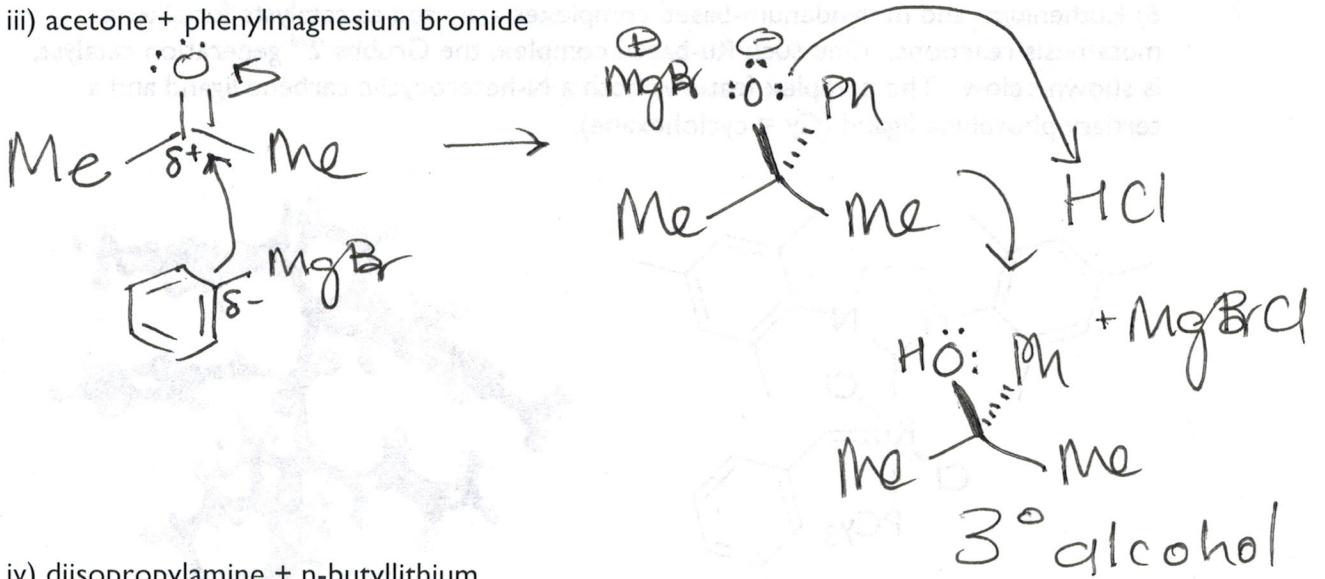 iii) acetone + phenylmagnesium bromide
:Ö
Me δ+ Me
MgBr
δ-
⊕ ⊖
MgBr :Ö: Ph
Me Me
HCl
+ MgBrCl
HÖ: Ph
Me Me
3° alcohol
iv) diisopropylamine + n-butyllithium